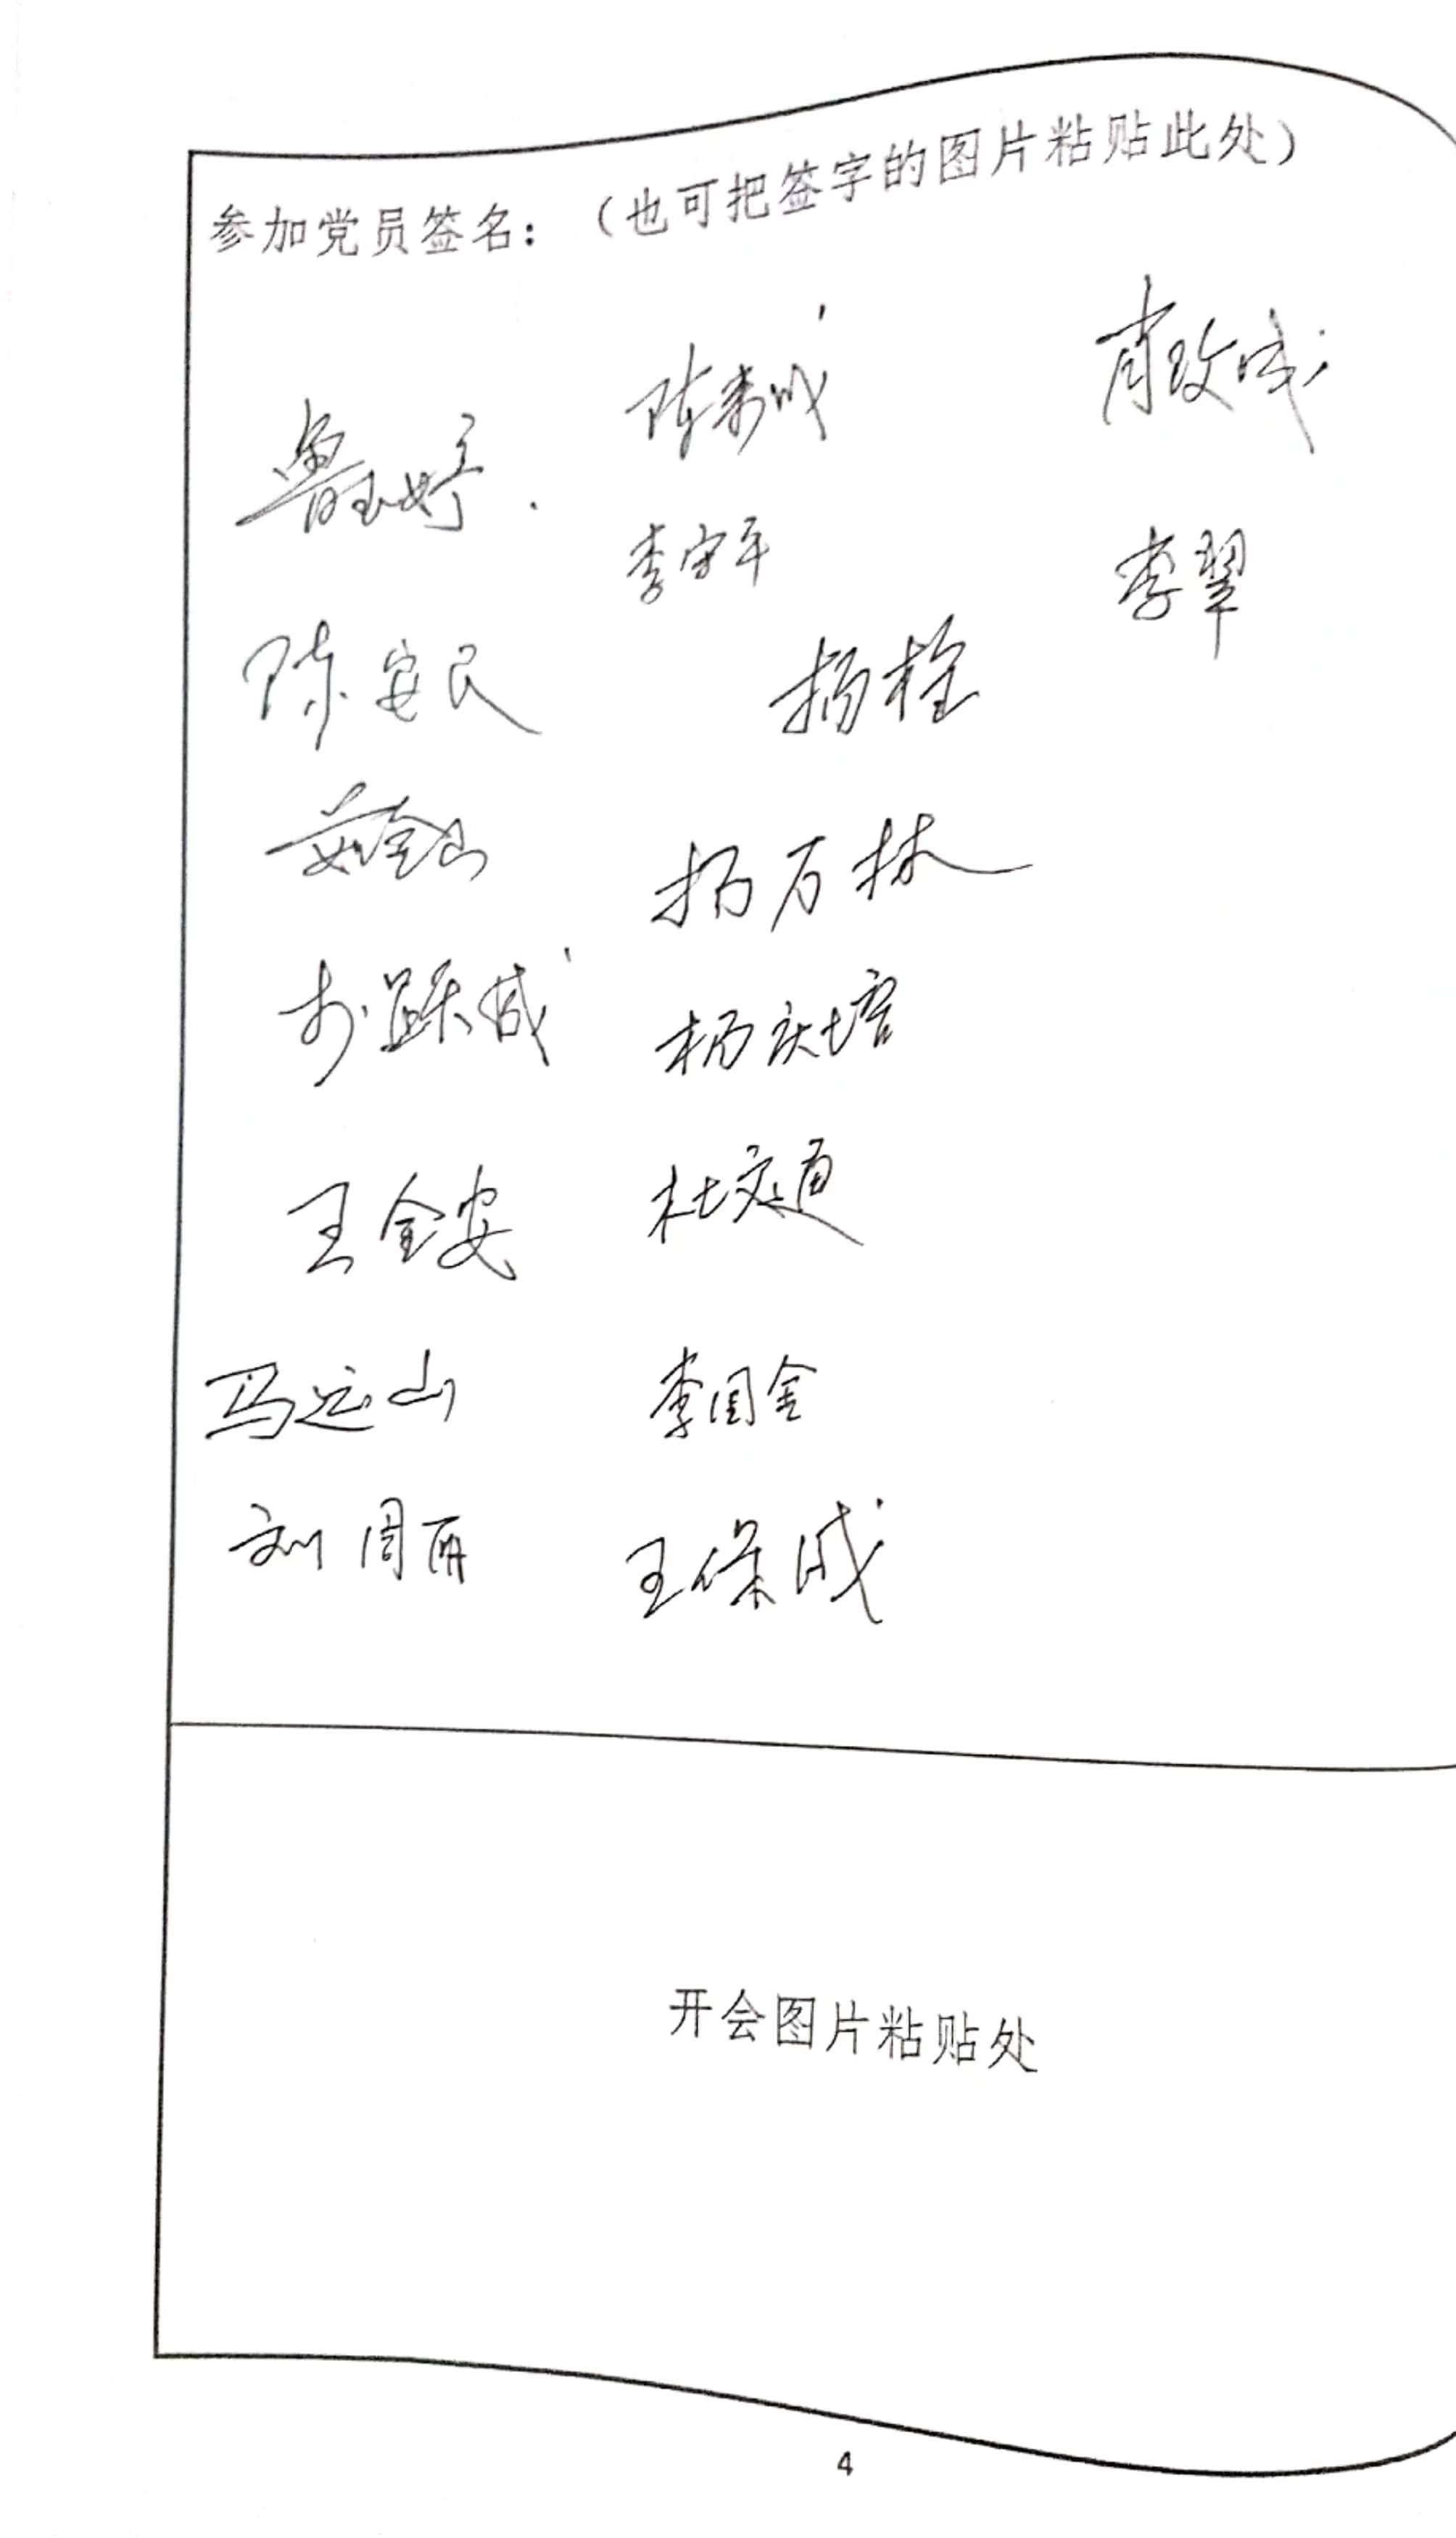 参加党员签名：（也可把签字的图片粘贴此处）
陈来成
肖玫成
鲁玉婷
李守平
李翠
陈安民
杨栓
茹金山
杨万林
杨庆培
王金安
杜交通
马运山
李国金
刘周丽
王保成
开会图片粘贴处
4